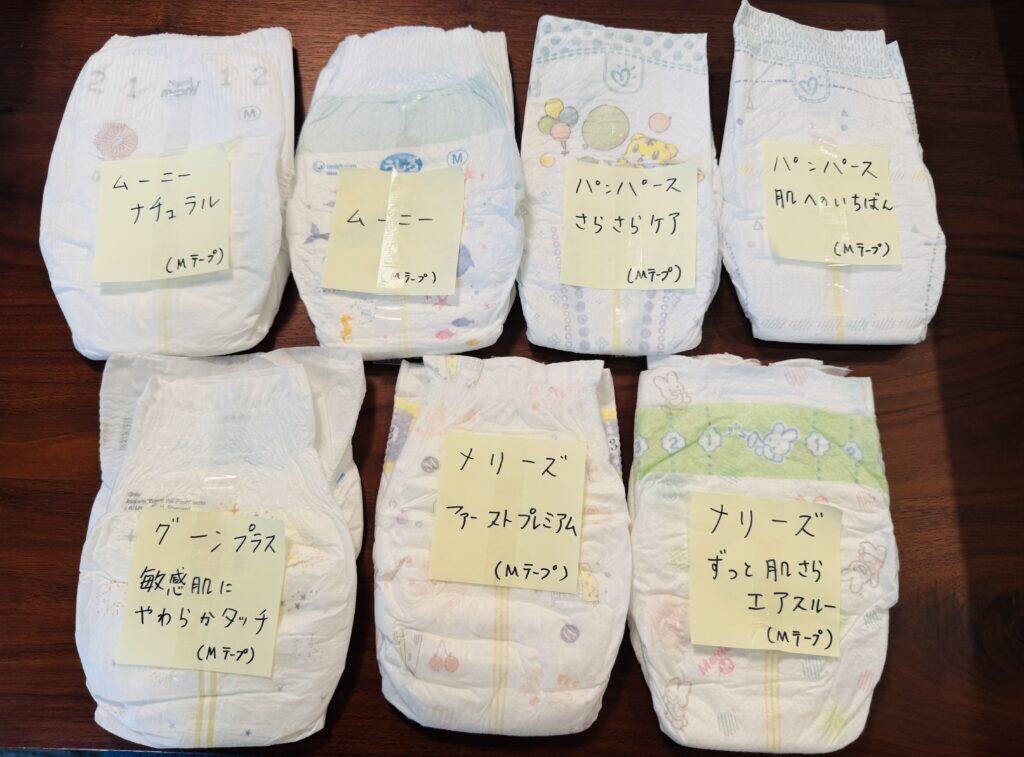 2 1 1 2
M
ムーニー
ナチュラル
(Mテープ)
M
ムーニー
(Mテープ)
パンパース
さらさらケア
(Mテープ)
パンパース
肌へのいちばん
(Mテープ)
グーンプラス
敏感肌に
やわらかタッチ
(Mテープ)
3
メリーズ
ファーストプレミアム
(Mテープ)
3 2 1 1 2
メリーズ
ずっと肌さら
エアスルー
(Mテープ)